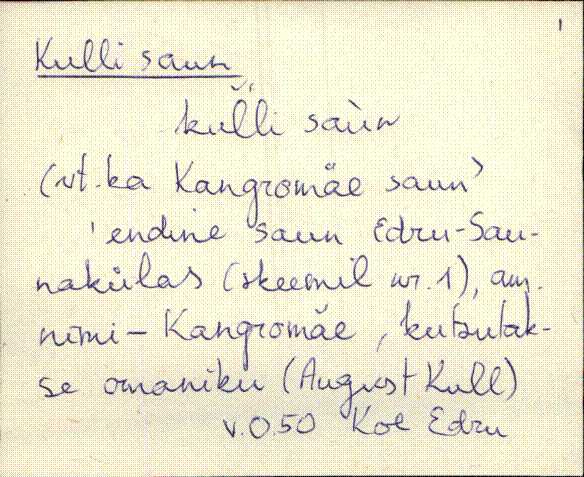 1
Kulli saun
kulli saùn
(vt. ka Kangromäe saun)
'endine saun Edru-Sau-
nakülas (skeemil nr. 1), am.
nimi – Kangromäe, kutsutak-
se omaniku (August Kull)
v.0.50 Koe Edru